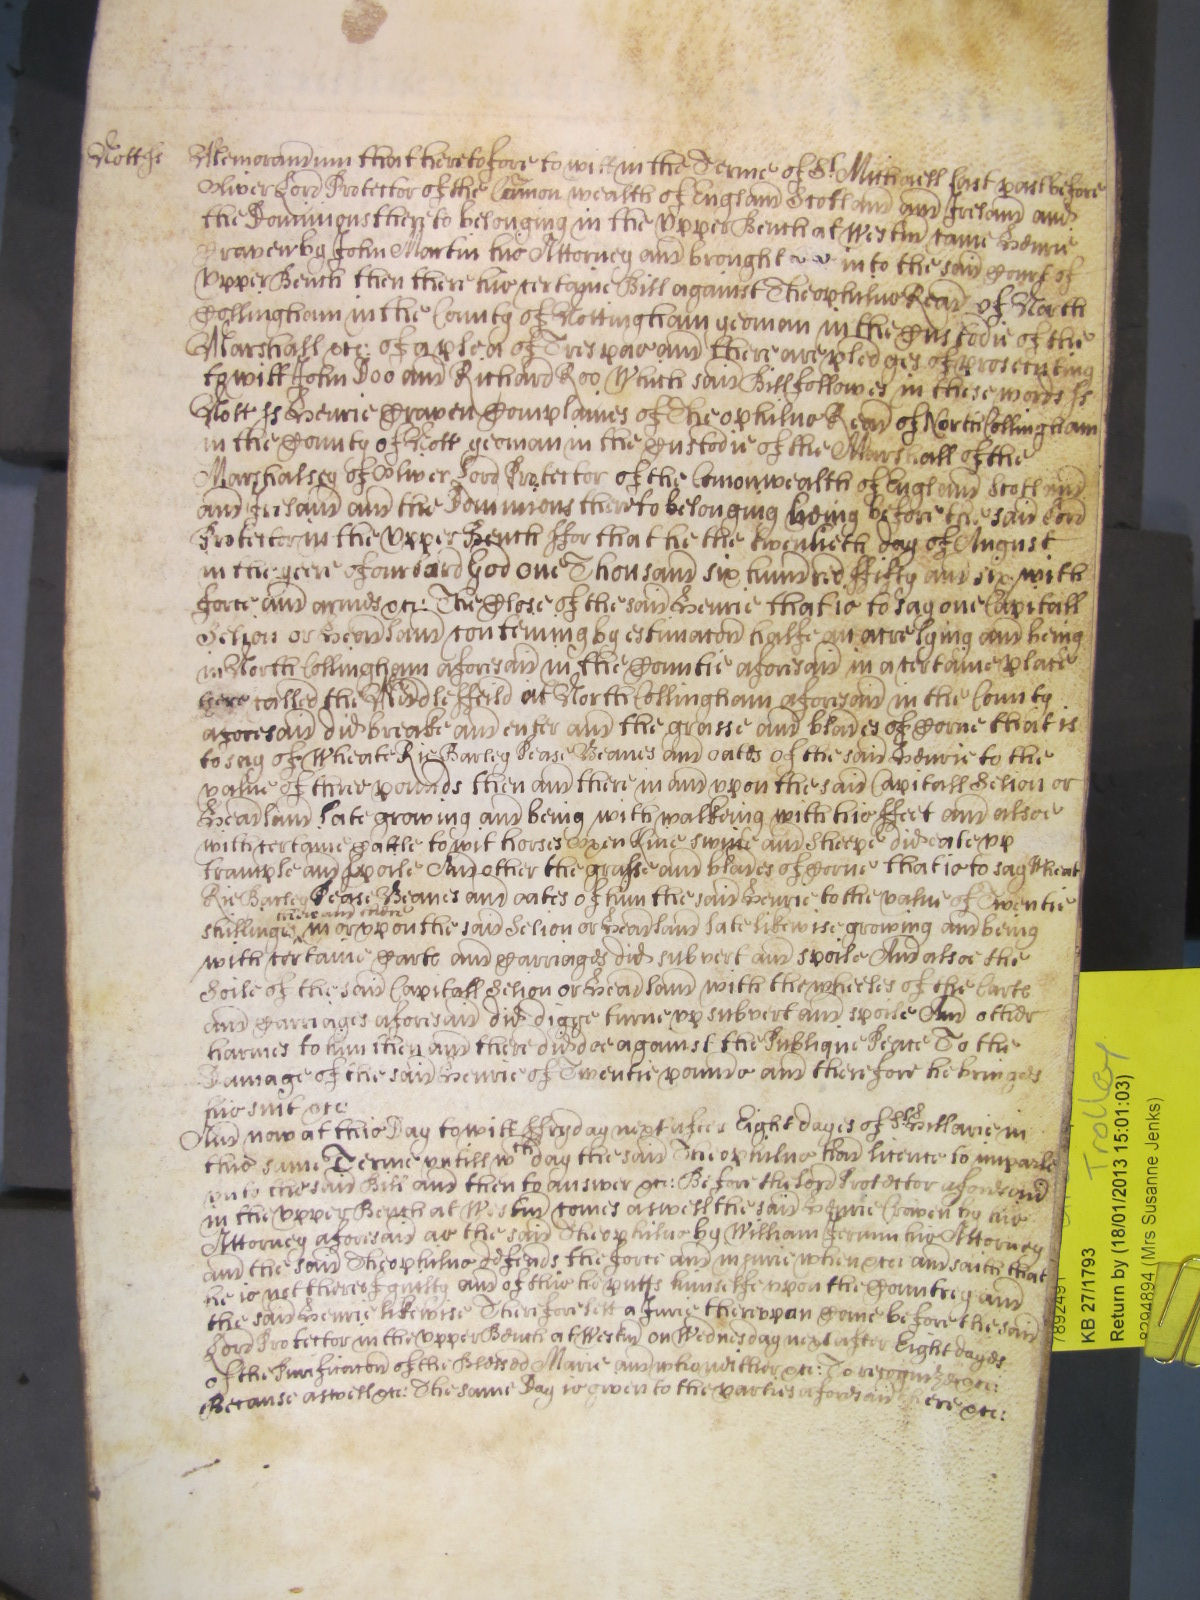 Nott ss Memorandum that heretofore to witt in the Terme of St. Michaell last past before
Oliver Lord Protector of the Comon wealth of England Scotland and Ireland and
the Dominions thereto belonging in the upper Bench at Westm came Henrie
Craven by John Martin his Attorney and brought in to the said Court of
upper Bench then there his certaine Bill against Theophilus Read of North
Collingham in the County of Nottingham yeoman in the Custodie of the
Marshall &c: of a plea of Trespas and there are pledges of prosecuting
to witt John Doo and Richard Roo Which said Bill followes in these words ss
Nott ss Henrie Craven Complaines of Theophilus Read of North Collingham
in the County of Nott yeoman in the Custodie of the Marshall of the
Marshalsey of Oliver Lord Protector of the Comonwealth of England Scotland
and Ireland and the Dominions thereto belonging being before the said Lord
Protector in the upper Bench ffor that he the twentieth day of August
in the yeere of our Lord God one Thousand six hundred ffifty and six with
force and armes &c: The Close of the said Henrie that is to say one Capitall
Selion or Headland conteining by estimacon halfe an acre lying and being
in North Collingham aforesaid in the Countie aforesaid in a certaine place
here called the Middle ffeild at North Collingham aforesaid in the County
aforesaid did breake and enter and the grasse and blades of Corne that is
to say of Wheate Rie Barley Pease Beanes and oates of the said Henrie to the
value of three pounds then and there in and upon the said Capitall Selion or
Headland late growing and being with walkeing with his ffeet and alsoe
with certaine Cattle to wit horses oxen Kine swine and sheepe did eate up
trample and spoile And other the grasse and blades of Corne that is to say Wheat
Rie Barley Pease Beanes and oates of him the said Henrie to the value of Twentie
there and there
shillings in or upon the said Selion or Headland late likewise growing and being
with certaine Carts and Carriages did subvert and spoile And alsoe the
Soile of the said Capitall Selion or Headland with the wheeles of the Carts
and Carriages aforesaid did digge turne up subvert and spoile And other
harmes to him then and there did doe against the Publique Peace To the
Damage of the said Henrie of Twentie pounds and therefore he bringes
his suit &c:
And now at this Day to witt ffryday next after Eight dayes of St Hillarie in
this same Terme untill wch day the said Theophilus had licence to imparle
unto the said Bill and then to answer &c: Before the Lord Protector aforesaid
in the upper Bench at Westm comes aswell the said Henrie Craven by his
Attorney aforesaid as the said Theophilus by William his Attorney
and the said Theophilus defends the force and injurie when &c: and saith that
he is not thereof guilty and of this he putts himselfe upon the Countrey and
the said Henrie likewise Therefore lett a Jurie thereupon Come before the said
Lord Protector in the upper Bench at Westm on Wednesday next after Eight dayes
of the Purificacon of the Blessed Marie and who neither &c: To recognize &c:
Because aswell &c: The same Day is given to the parties aforesaid there &c:
Trolley
KB 27/1793
Return by (18/01/2013 15:01:03)
(Mrs Susanne Jenks)